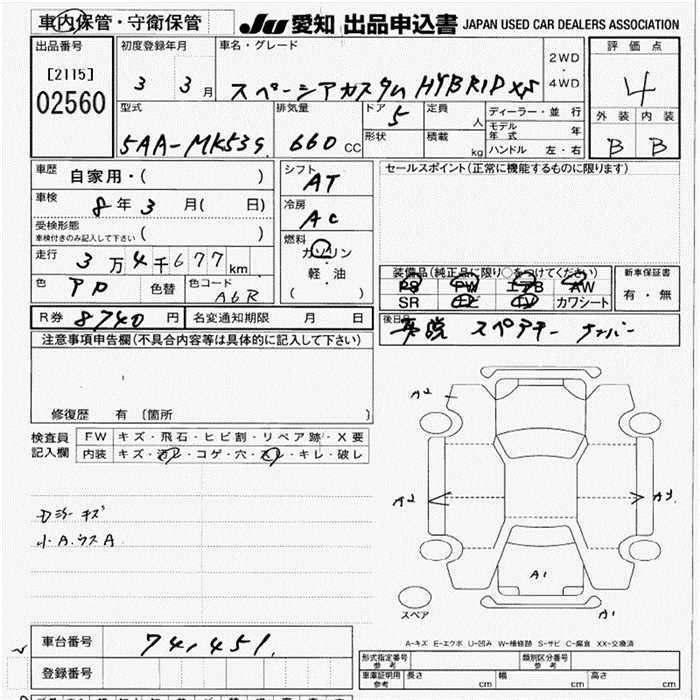 車内保管・守衛保管
JU 愛知 出品申込書 JAPAN USED CAR DEALERS ASSOCIATION
出品番号
[2115]
02560
初度登録年月
3 3月
車名・グレード
スペーシアカスタム HYBRID XS
2WD
・
4WD
評価点
4
外装 内装
B B
型式
5AA-MK53S
排気量
660 CC
ドア
5
形状
定員
人
積載
kg
ディーラー・並行
モデル年式 年
ハンドル 左・右
車歴
自家用・( )
車検
8年3月( 日)
受検形態
車検付きのみ記入して下さい ( )
走行
3万4千677km
色
色替
色コード
シフト
AT
冷房
AC
燃料
ガソリン
軽・油
( )
セールスポイント(正常に機能するものに限ります)
装備品(純正品に限り○をつけてください)
PS PW エアB AW
SR ナビ TV カワシート
新車保証書
有・無
R券 8740円
名変通知期限 月 日
後日品
取説 スペアキー ナンバー
注意事項申告欄(不具合内容等は具体的に記入して下さい)
修復歴 有〔箇所 〕
検査員
記入欄
FW キズ・飛石・ヒビ割・リペア跡・X要
内装 キズ・汚レ・コゲ・穴・スレ・キレ・破レ
小A.ウスA
A2
A2
A3
A1
A1
スペア
A-キズ E-エクボ U-凹み W-補修跡 S-サビ C-腐食 XX-交換済
車台番号
741451
登録番号
形式指定番号
参考
類別区分番号
参考
車庫証明用
参考
長さ cm 幅 cm 高さ cm